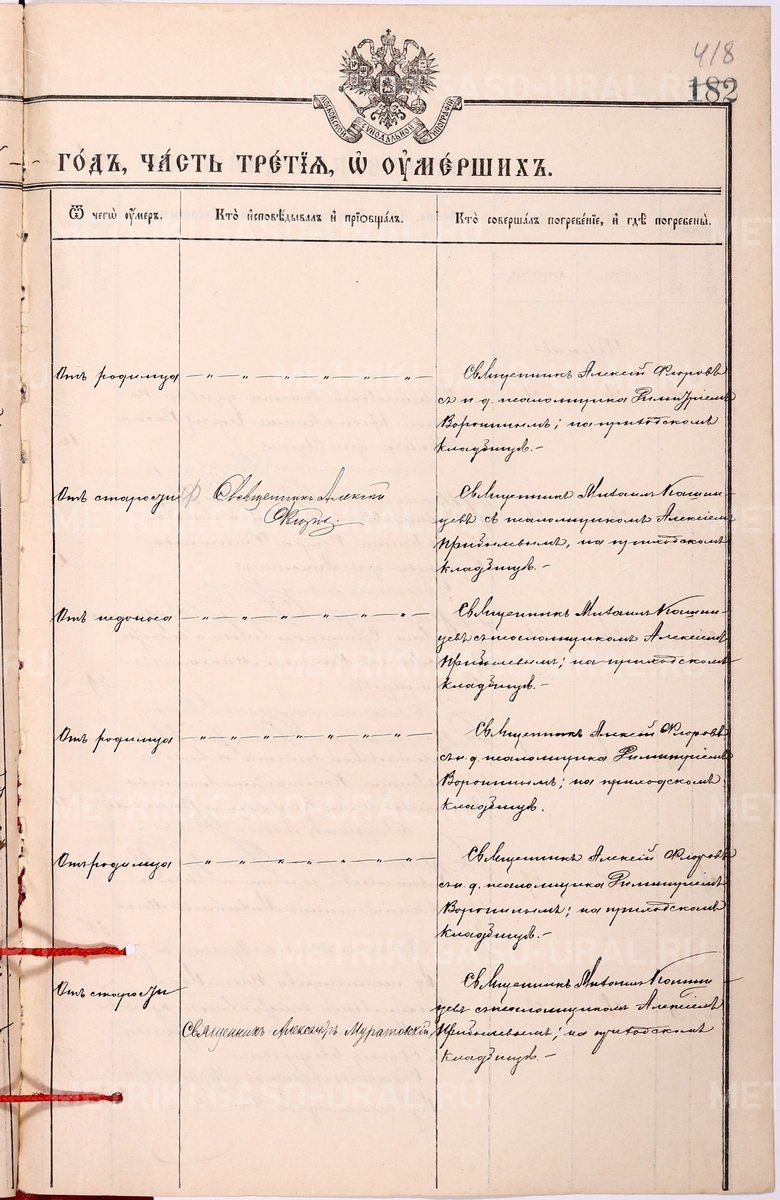 418
182
МОСКОВСКОЙ СѴНОДАЛЬНОЙ ТИПОГРАФІИ
ГО́ДЪ, ЧА́СТЬ ТРЕ́ТІѦ, Ѡ҆ ОУ҆МЕ́РШИХЪ.
Ѿ чегѡ̀ оу҆́меръ.
Кто̀ и҆сповѣ́дывалъ и҆ прїѡбща́лъ.
Кто̀ соверша́лъ погребе́нїе, и҆ гдѣ̀ погребены̀.
Отъ родимца — „ — „ — „ — „ — „ — „ —
Священникъ Алексій Флоровъ
съ и. д. псаломщика Димитріемъ
Воронинымъ; на приходскомъ
кладбищѣ. —
Отъ старости
Священникъ Алексій
Флоровъ.
Священникъ Михаилъ Кошин-
цевъ съ псаломщикомъ Алексіемъ
Прибылевымъ, на приходскомъ
кладбищѣ. —
Отъ недоноса — „ — „ — „ — „ — „ — „ —
Священникъ Михаилъ Кошин-
цевъ съ псаломщикомъ Алексіемъ
Прибылевымъ; на приходскомъ
кладбищѣ. —
Отъ родимца — „ — „ — „ — „ — „ — „ —
Священникъ Алексій Флоровъ
съ и. д. псаломщика Димитріемъ
Воронинымъ; на приходскомъ
кладбищѣ.
Отъ родимца — „ — „ — „ — „ — „ — „ —
Священникъ Алексій Флоровъ
съ и. д. псаломщика Димитріемъ
Воронинымъ; на приходскомъ
кладбищѣ. —
Отъ старости
Священникъ Александръ Муратовскій
Священникъ Михаилъ Кошин-
цевъ съ псаломщикомъ Алексіемъ
Прибылевымъ; на приходскомъ
кладбищѣ. —
METRIKI.GASO-URAL.RU